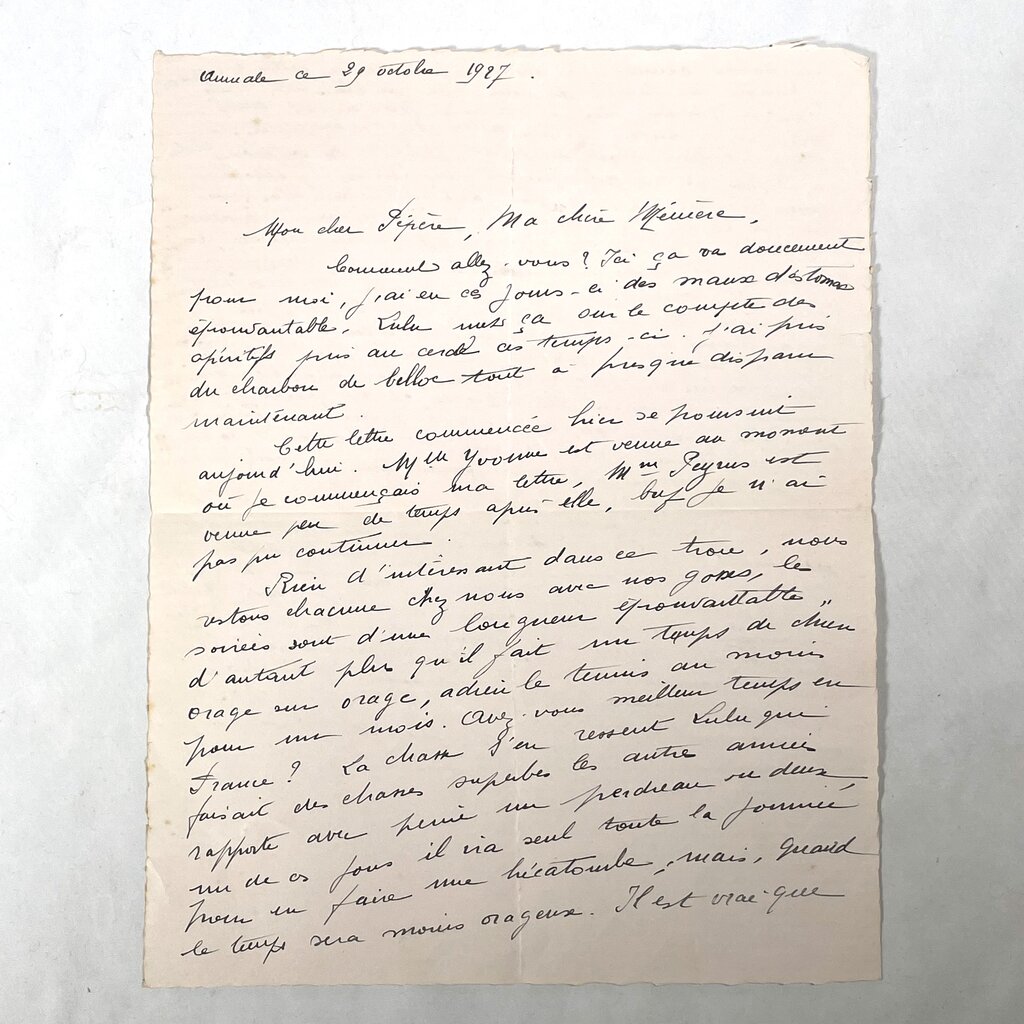 Aumale ce 29 octobre 1927.
Mon cher Pépère, Ma chère Mémère,
Comment allez-vous? Ici ça va doucement
pour moi, j'ai eu ces jours-ci des maux d'estomac
épouvantable. Lulu met ça sur le compte des
apéritifs pris au cercle ces temps-ci. J'ai pris
du charbon de belloc tout a presque disparu
maintenant.
Cette lettre commencée hier se poursuit
aujourd'hui. Mlle Yvonne est venue au moment
où je commençais ma lettre, Mme Peyrus est
venue peu de temps après elle, bref je n'ai
pas pu continuer.
Rien d'intéressant dans ce trou, nous
restons chacune chez nous avec nos gosses, les
soirées sont d'une longueur épouvantable
d'autant plus qu'il fait un temps de chien
orage sur orage, adieu le tennis au moins
pour un mois. Avez-vous meilleur temps en
France? La chasse s'en ressent Lulu qui
faisait des chasses superbes les autre année
rapporte avec peine un perdreau ou deux,
un de ces jours il ira seul toute la journée
pour en faire une hécatombe, mais, quand
le temps sera moins orageux. Il est vrai que